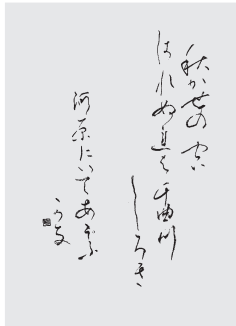 秋かせの 空
はれぬれは千曲川
しろき
河原にいてあそふ
かな